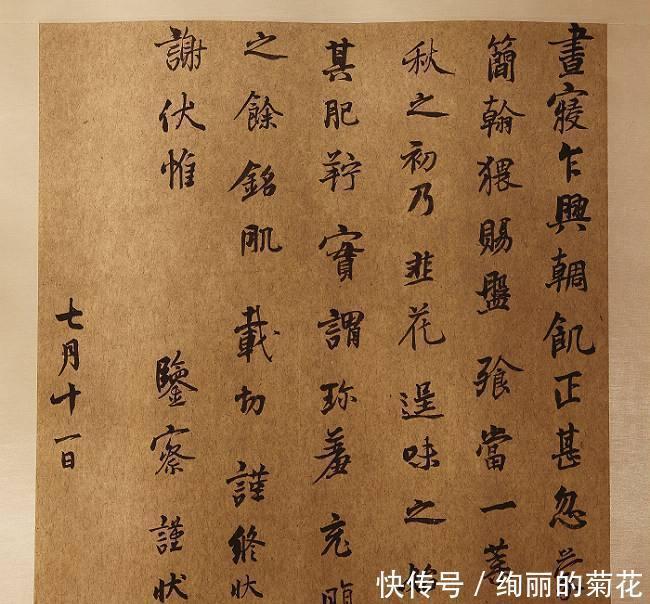 晝寢乍興輖飢正甚忽蒙
簡翰猥賜盤飧當一葉
秋之初乃韭花逞味之始
其肥羜實謂珍羞充腹
之餘銘肌載切謹修狀
謝伏惟 鑒察謹狀
七月十一日
快传号 / 绚丽的菊花